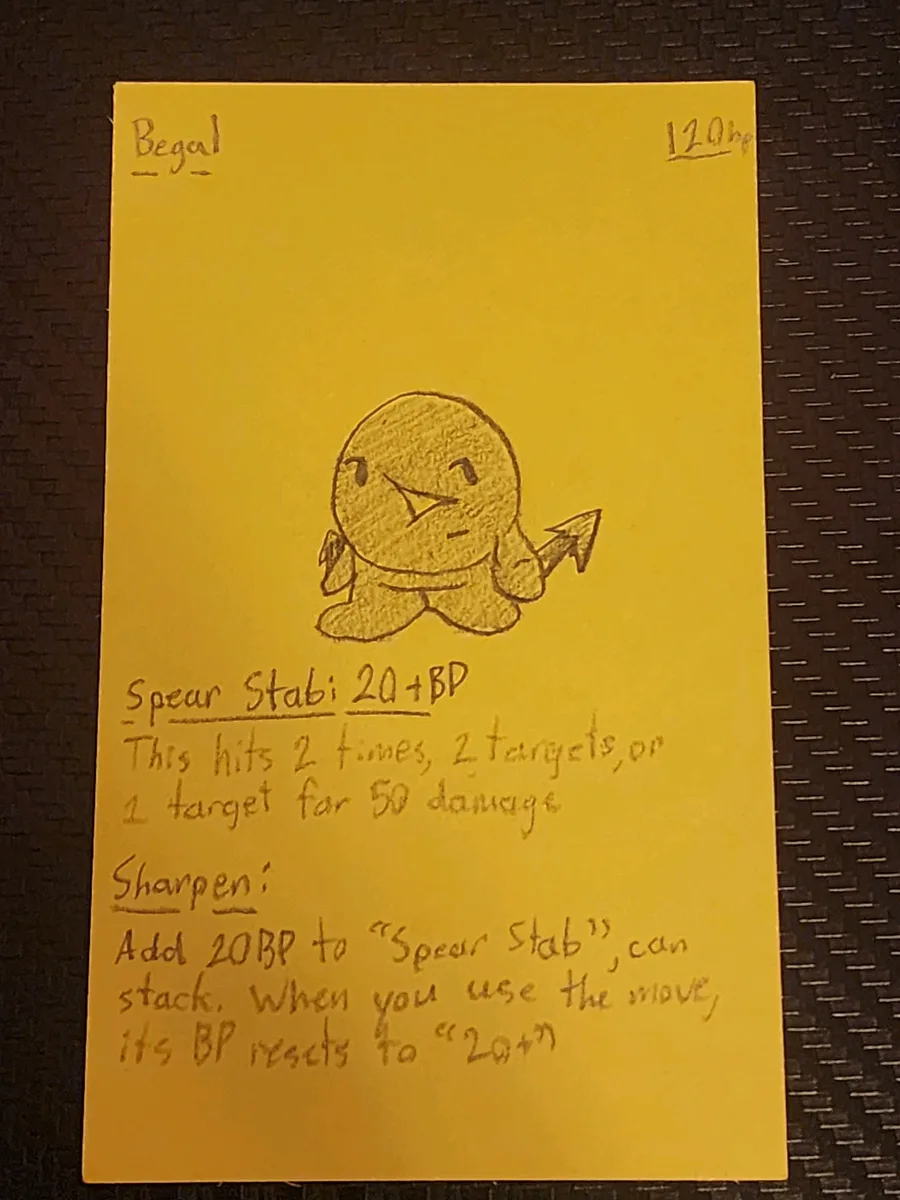 Begal
120hp
Spear Stab: 20+BP
This hits 2 times, 2 targets, or
1 target for 50 damage
Sharpen:
Add 20BP to "Spear Stab", can
stack. When you use the move,
its BP resets to "20+"